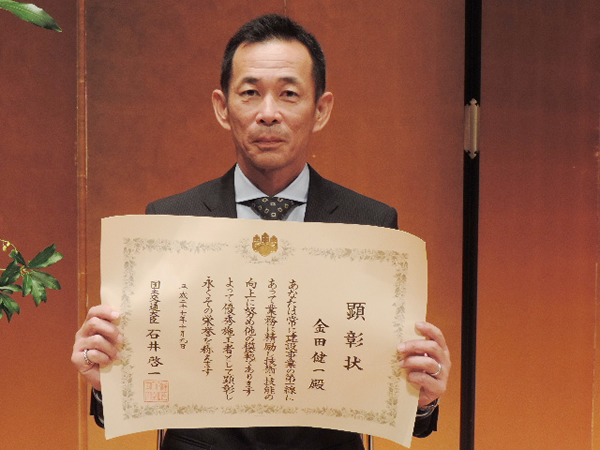 顕彰状
金田健一殿
あなたは常に建設事業の第一線に
あって業務に精励し技術・技能の
向上に努め他の模範であります
よって優秀施工者として顕彰し
永くその栄誉を称えます
平成二十七年十月九日
国土交通大臣 石井啓一